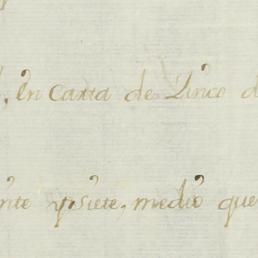 En Carta de Cinco d
nte ysiete, medio que